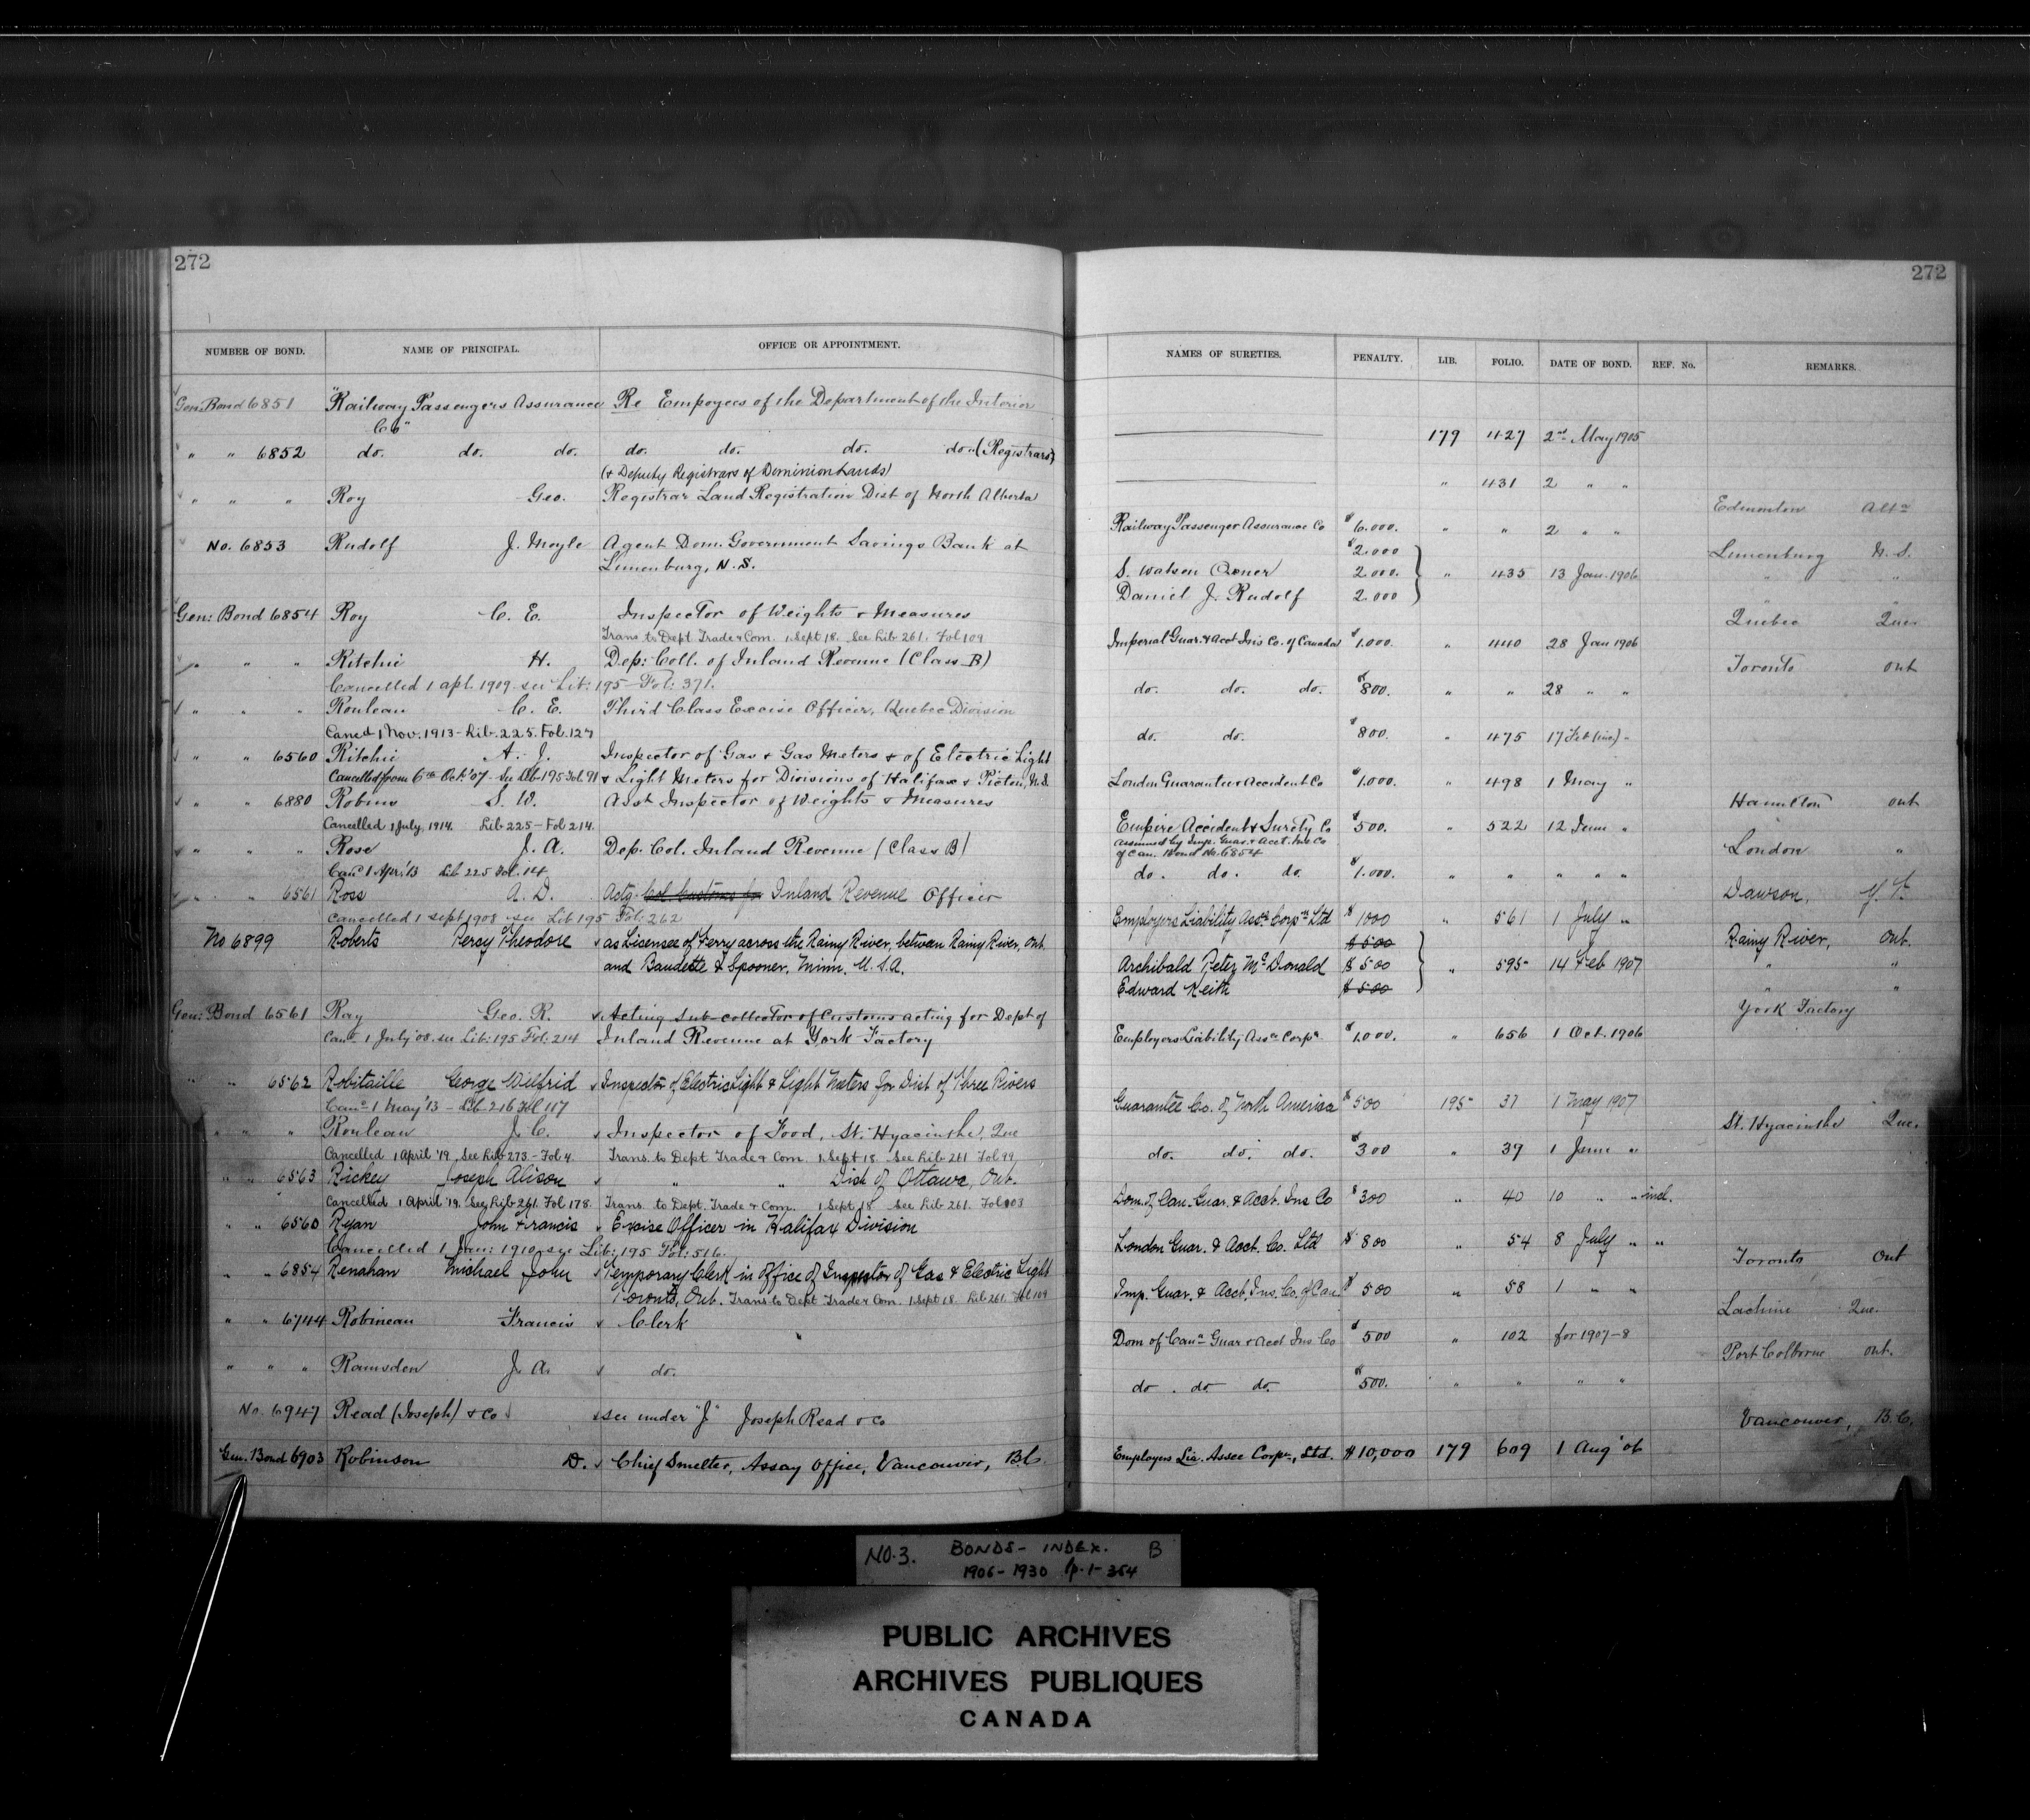 272
NUMBER OF BOND. NAME OF PRINCIPAL. OFFICE OR APPOINTMENT.
Gen: Bond 6851 "Railway Passengers Assurance Re Empoyees of the Department of the Interior
Co"
" " 6852 do. do. do. do. do. do. do. (Registrars)
(& Deputy Registrars of Dominion Lands)
" " " Roy Geo. Registrar Land Registration Dist of North Alberta
No. 6853 Rudolf J. Moyle Agent Dom. Government Savings Bank at
Lunenburg, N.S.
Gen: Bond 6854 Roy C. E. Inspector of Weights & Measures
Trans to Dept Trade & Com. 1 Sept 18. See Lib 261. Fol 109
" " " Ritchie H. Dep: Coll. of Inland Revenue (Class B)
Cancelled 1 apl. 1909. see Lib: 195 Fol: 371.
" " " Rouleau C. E. Third Class Excise Officer, Quebec Division
Canc'd 1 Nov. 1913 - Lib. 225. Fol. 127
" " 6560 Ritchie A. J. Inspector of Gas & Gas Meters & of Electric Light
Cancelled from 6th Oct. '07 - See Lib 195 Fol. 91 & Light Meters for Divisions of Halifax & Pictou, N.S.
" " 6880 Robins S. W. Asst Inspector of Weights & Measures
Cancelled 1 July, 1914. Lib 225 - Fol 214.
" " " Rose J. A. Dep. Col. Inland Revenue (Class B)
Canc'd 1 Apr. '13 Lib 225 Fol. 14
" " 6561 Ross A. D. Actg. Col Customs for Inland Revenue Officer
Cancelled 1 sept 1908 see Lib 195 Fol: 262
No 6899 Roberts Percy Theodore as Licensee of Ferry across the Rainy River, between Rainy River, Ont.
and Baudette & Spooner, Minn. U.S.A.
Gen: Bond 6561 Ray Geo. R. Acting Sub-collector of Customs acting for Dept of
Canc. 1 July '08. see Lib: 195 Fol. 214 Inland Revenue at York Factory
" " 6562 Robitaille George Wilfrid Inspector of Electric Light & Light Meters for Dist of Three Rivers
Canc. 1 May '13 - Lib 216 Fol 117
" " " Rouleau J. C. Inspector of Food, St. Hyacinthe, Que
Cancelled 1 April '19. See Lib 273 - Fol 4. Trans. to Dept Trade & Com. 1 Sept 18. See Lib 261 Fol 99
" " 6563 Rickey Joseph Alison " " Dist of Ottawa, Ont.
Cancelled 1 April '19. See Lib 261. Fol 178. Trans. to Dept. Trade & Com. 1 Sept 18 See Lib 261. Fol 103
" " 6560 Ryan John Francis Excise Officer in Halifax Division
Cancelled 1 Jan: 1910 see Lib: 195 Fol: 516.
" " 6854 Renahan Michael John Temporary Clerk in office of Inspector of Gas & Electric Light
Toronto, Ont. Trans. to Dept Trade & Com. 1 Sept 18. Lib 261. Fol 109
" " 6744 Robineau Francis Clerk
" " " Ramsden J. A. do.
No. 6947 Read (Joseph) & Co see under "J" Joseph Read & Co
Gen. Bond 6903 Robinson D. Chief Smelter, Assay Office, Vancouver, B.C.
272
NAMES OF SURETIES. PENALTY. LIB. FOLIO. DATE OF BOND. REF. No. REMARKS.
179 427 2nd May 1905
" 431 2 " "
Railway Passenger Assurance Co $6.000. " " 2 " " Edmonton Alta
$2.000 Lunenburg N.S.
S. Watson Oxner 2.000. " 435 13 Jan. 1906 " "
Daniel J. Rudolf 2.000 " "
Imperial Guar. & Acct Ins Co. of Canada $1.000. " 440 28 Jan 1906 Quebec Que.
do. do. do. $800. " " 28 " " Toronto Ont
do. do. $800. " 475 17 Feb (inc) "
London Guarantee & Accident Co $1.000. " 498 1 May "
Empire Accident & Surety Co $500. " 522 12 June " Hamilton Ont
assumed by Imp. Guar. & Acct. Ins Co
of Can. Bond No. 6854
do. do. do. $1.000. " " " " " London "
Employers Liability Assce Corpn Ltd $1000 " 561 1 July " Dawson, Y.T.
$500 Rainy River, Ont.
Archibald Peter McDonald $500 " 595 14 Feb 1907 " "
Edward Keith $500 " "
Employers Liability Assce Corpn $1.000. " 656 1 Oct. 1906 York Factory
Guarantee Co. of North America $500 195 37 1 May 1907
do. do. do. $300 " 39 1 June " St. Hyacinthe Que.
Dom. of Can. Guar. & Acct. Ins Co $300 " 40 10 " " incl.
London Guar. & Acct. Co. Ltd $800 " 54 8 July " "
Imp. Guar. & Acct. Ins. Co. of Can $500 " 58 1 " " Toronto Ont
Dom of Cana Guar & Acct Ins Co $500 " 102 for 1907-8 Lachine Que.
do. do do. $500. " " " " Port Colborne Ont.
Employers Lia. Assce Corpn, Ltd. $10,000 179 609 1 Aug '06 Vancouver, B.C.
NO. 3. BONDS - INDEX. B
1906 - 1930 p. 1 - 354
PUBLIC ARCHIVES
ARCHIVES PUBLIQUES
CANADA